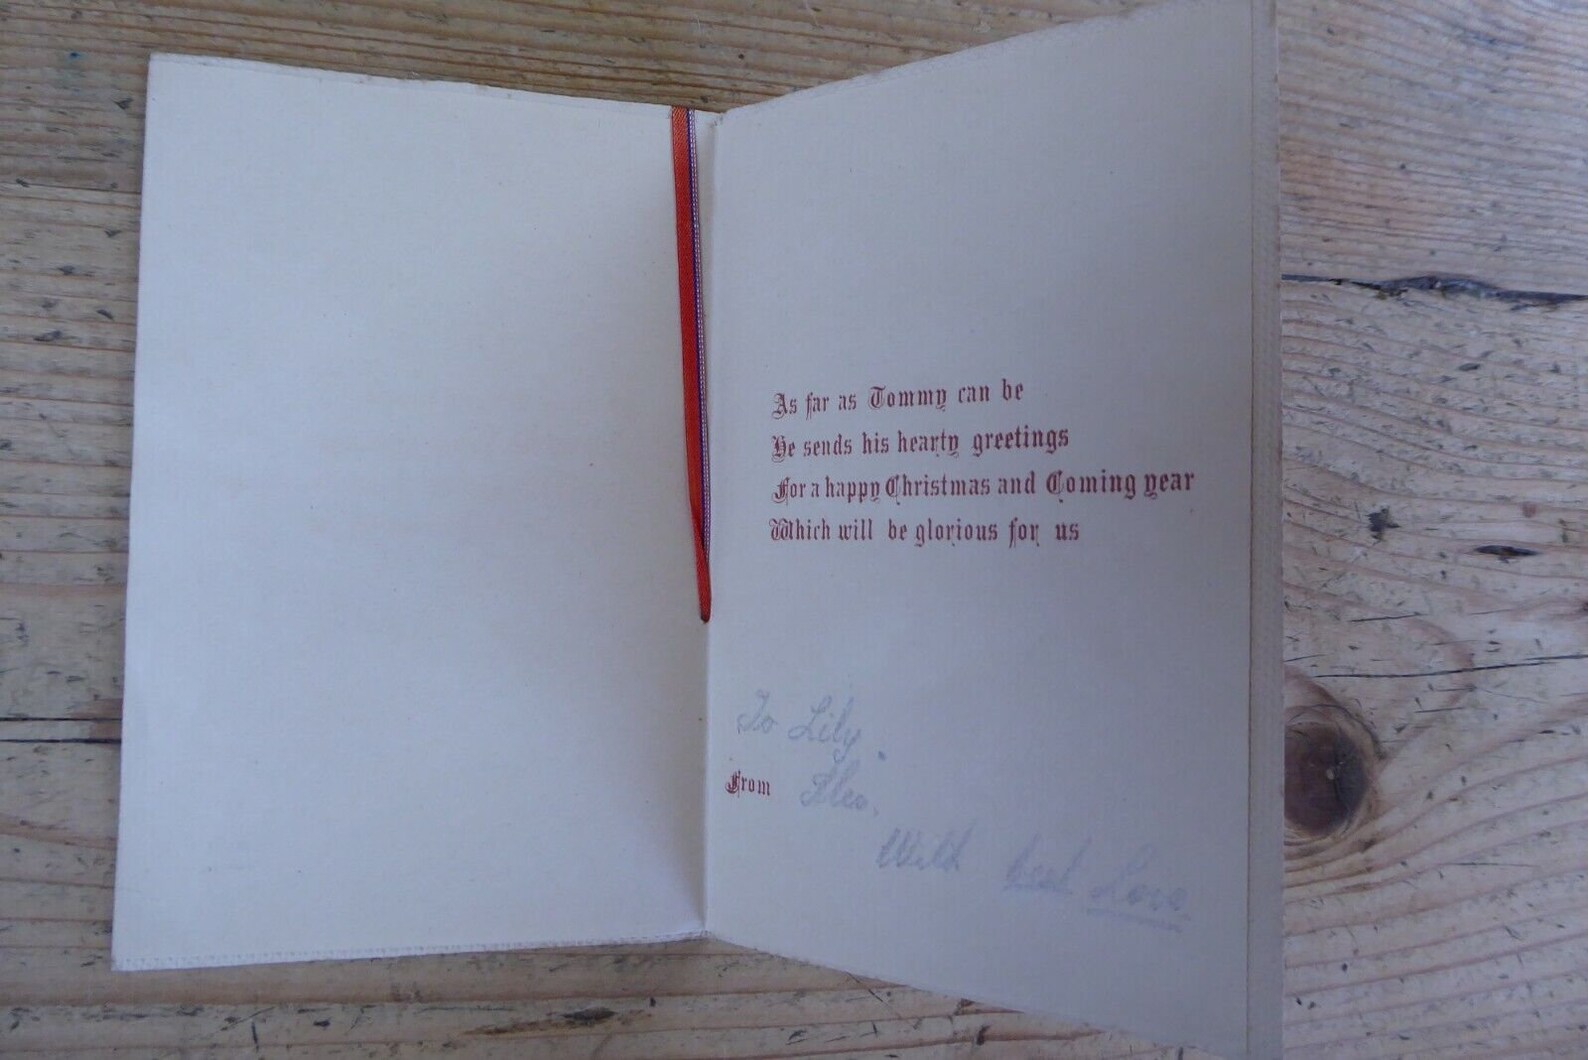 As far as Tommy can be
He sends his hearty greetings
For a happy Christmas and Coming year
Which will be glorious for us
To Lily.
From
With best Love